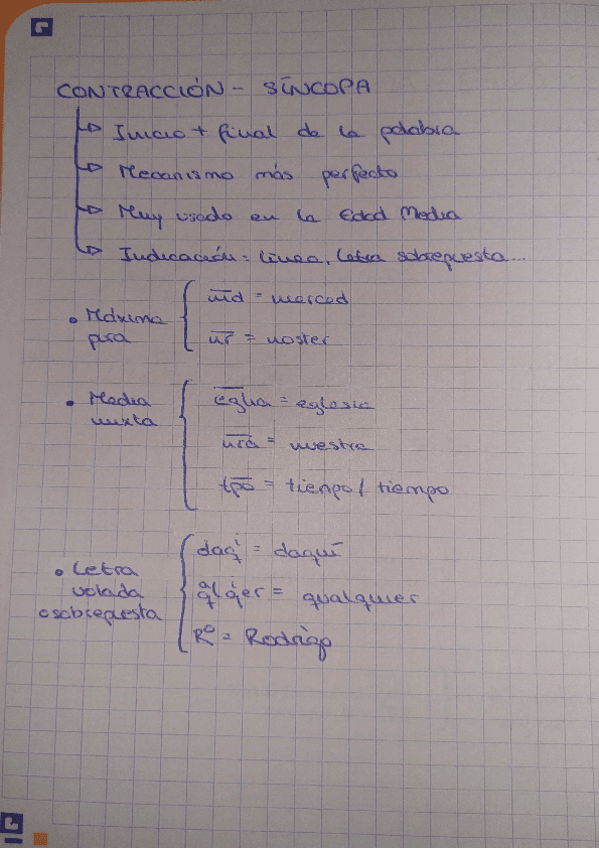 CONTRACCIÓN - SÍNCOPA
Inicio + final de la palabra
Mecanismo más perfecto
Muy usado en la Edad Media
Indicación: línea, letra sobrepuesta...
• Máxima pura
m̅d̅ = merced
n̅r̅ = noster
• Media mixta
e̅g̅l̅i̅a = eglesia
n̅r̅a̅ = nuestra
tp̅o̅ = tienpo / tiempo
• Letra volada o sobrepuesta
daqⁱ = daquí
qᵃl qⁱer = qualquier
Rº = Rodrigo